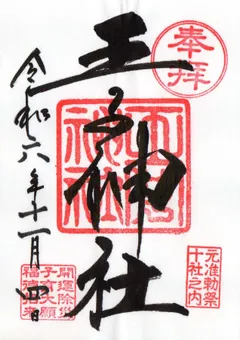 奉拝
王子神社
王子神社
元准勅祭
十社之内
令和六年十一月四日
開運除災
子育大願
福徳